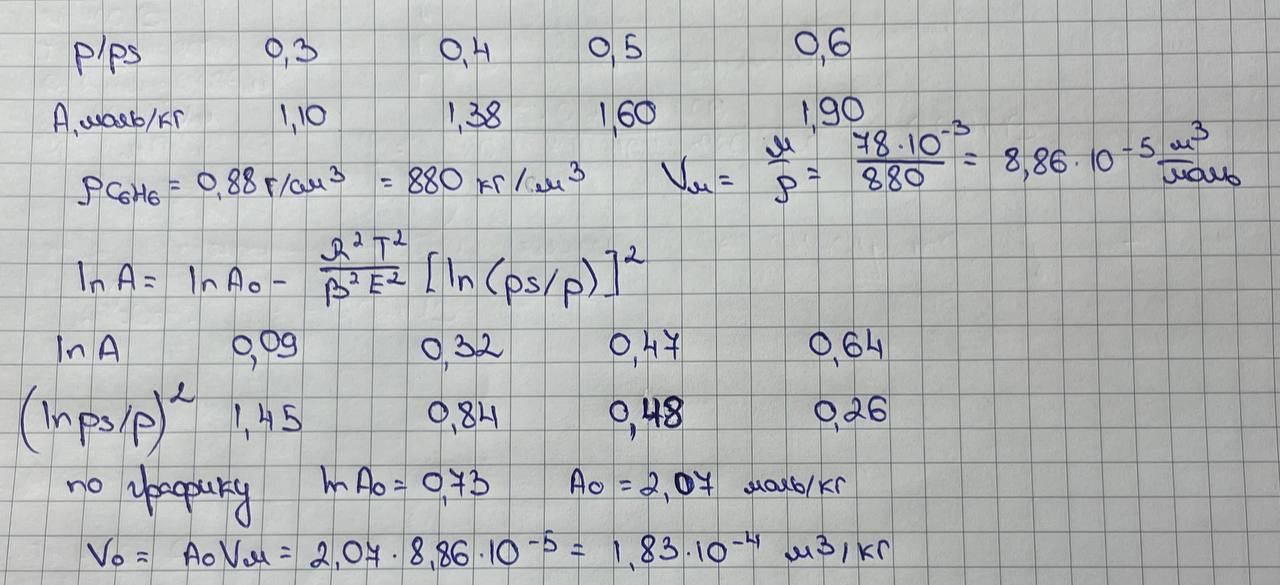 p/ps 0,3 0,4 0,5 0,6
A, моль/кг 1,10 1,38 1,60 1,90
ρC6H6 = 0,88 г/см³ = 880 кг/м³ Vм = М/ρ = 78·10⁻³/880 = 8,86·10⁻⁵ м³/моль
ln A = ln A₀ - R²T²/β²E² [ln(ps/p)]²
ln A 0,09 0,32 0,47 0,64
(ln ps/p)² 1,45 0,84 0,48 0,26
по графику ln A₀ = 0,73 A₀ = 2,07 моль/кг
V₀ = A₀Vм = 2,07·8,86·10⁻⁵ = 1,83·10⁻⁴ м³/кг